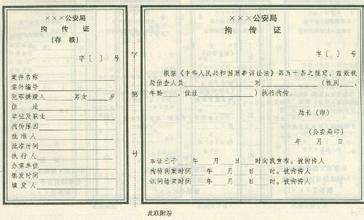 ×××公安局
拘传证
(存根)
字〔 〕 号
案件名称
案件编号
犯罪嫌疑人 男女 岁
住址
单位及职业
拘传原因
批准人
批准时间
执行人
办案单位
填发时间
填发人
字
第
号
×××公安局
拘传证
字〔 〕 号
根据《中华人民共和国刑事诉讼法》第五十条之规定,兹派我
局侦查人员 对 (性别
年龄 ,住址 )执行拘传。
局长(印)
(公安局印)
年 月 日
本证已于 年 月 日 时向我宣布。被拘传人
拘传到案时间 年 月 日 时。被拘传人
讯问结束时间 年 月 日 时。被拘传人
此联附卷